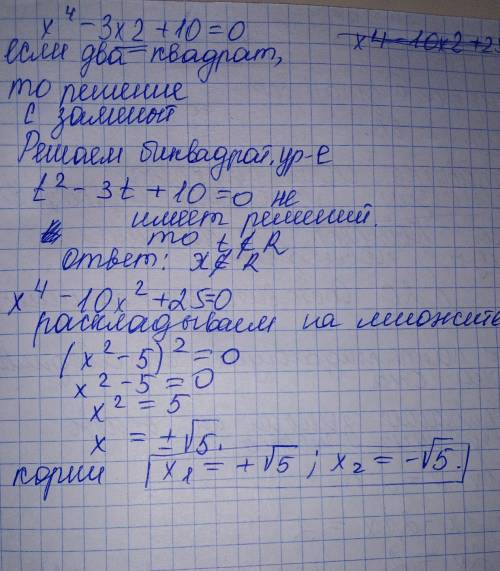 x⁴ - 3x2 + 10 = 0
x4 - 10x2 + 25
если два квадрат,
то решение
с заменой
Решаем биквадрат. ур-е
t² - 3t + 10 = 0 не
имеет решений.
то t ∉ R
ответ: x ∉ R
x⁴ - 10x² + 25 = 0
раскладываем на множите
(x² - 5)² = 0
x² - 5 = 0
x² = 5
x = ±√5.
корни x₁ = +√5 ; x₂ = -√5.